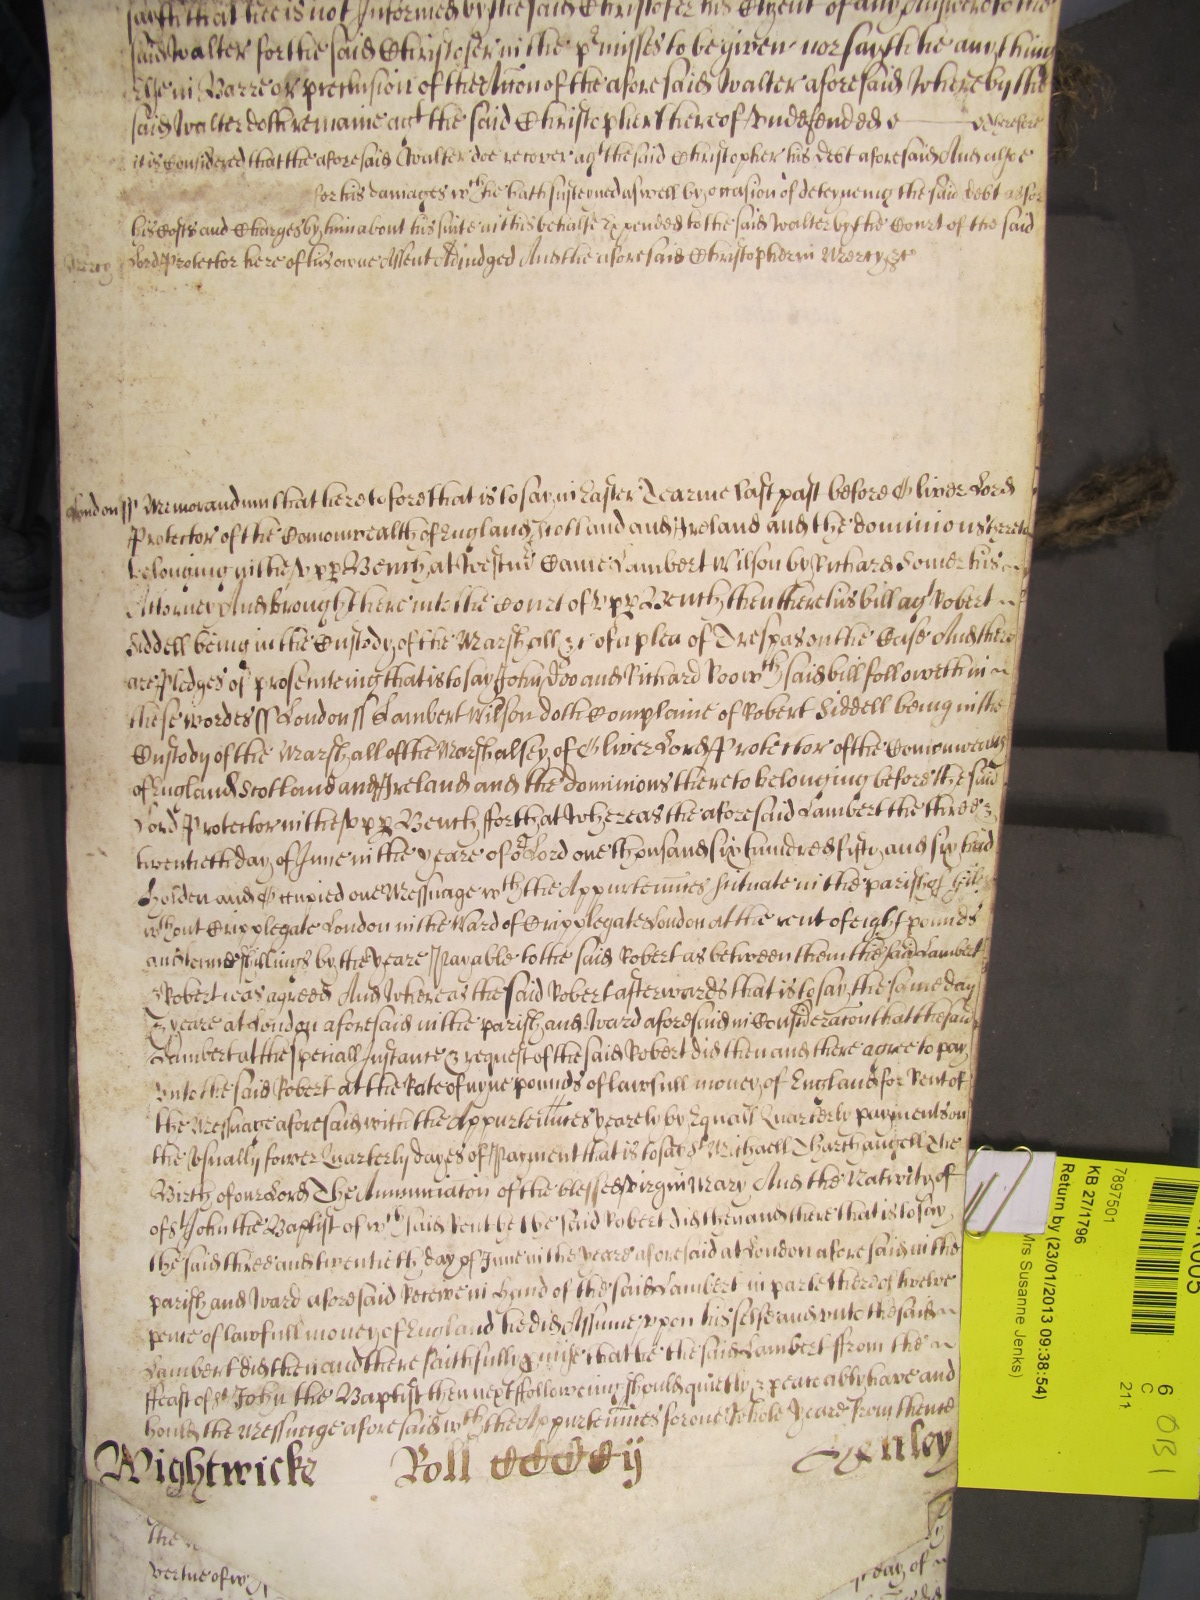 saith that hee is not Informed by the said Christofer his Clyent of any Answere to the
said Walter for the said Christofer in the pmisses to be given nor sayth he any thing
Else in Barre or preclusion of the Accon of the aforesaid Walter aforesaid Whereby the
said Walter doth remaine agt the said Christopher thereof Undefended Wherefore
it is Considered that the aforesaid Walter doe recover agt the said Christopher his debt aforesaid And alsoe
for his damages wch he hath susteyned aswell by occasion of deteyneing the said debt as for
his Costs and Charges by him about his suite in this behalfe Expended to the said Walter by the Court of the said
Mercy Lord Protector here of his owne Assent Adjudged And the aforesaid Christopher in Mercy &c
London ss Memorandum that heretofore that is to say in Easter Tearme last past before Oliver Lord
Protector of the Comonwealth of England Scotland and Ireland and the dominions thereto
belonging in the Upp Bench at Westmr Came Lambert Wilson by Richard Somer his
Attorney And brought here into the Court of Upp Bench then there his bill agt Robert
Siddell being in the Custody of the Marshall &c of a plea of Trespas on the Case And there
are Pledges of prosecuteing that is to say John Doo and Richard Roo wch said bill followeth in
these wordes ss London ss Lambert Wilson doth Complaine of Robert Siddell being in the
Custody of the Marshall of the Marshalsey of Oliver Lord Protector of the Comonwealth
of England Scotland and Ireland and the dominions thereto belonging before the said
Lord Protector in the Upp Bench ffor that Whereas the aforesaid Lambert the three &
twentieth day of June in the yeare of or Lord one thousand six hundred fifty and six had
Holden and Occupied one Messuage wth the Appurtennces scituate in the parish of Giles
wthout Cripplegate London in the Ward of Cripplegate London at the rent of eight pounds
and tenne shillings by the yeare Payable to the said Robert as betweene them the said Lambert
& Robert it was agreed And Whereas the said Robert afterwards that is to say the same day
& yeare at London aforesaid in the parish and Ward aforesaid in Consideracon that the said
Lambert at the speciall Instance & request of the said Robert did then and there agree to pay
unto the said Robert at the Rate of nyne pounds of lawfull money of England for Rent of
the Messuage aforesaid with the Appurtennces yearely by Equall Quarterly payments on
the usually fower Quarterly dayes of Payment that is to say St Michaell Tharchangell The
Birth of our Lord The Annunciaton of the blessed virgin Mary And the Nativity of
of St John the Baptist of wch said Rent he the said Robert did then and there that is to say
the said three and twentieth day of June in the yeare aforesaid at London aforesaid in the
parish and Ward aforesaid Receive in hand of the said Lambert in parte thereof twelve
pence of lawfull money of England he did Assume upon himselfe and unto the said
Lambert did then and there faithfully pmise that he the said Lambert ffrom the
ffeast of St John the Baptist then next following should quietly & peaceably have and
hould the Messuage aforesaid wth the Appurtennces for one whole yeare From thence
Wightwicke Roll CCCCij Henley
the
vertue of day of
7897501
KB 27/1796
Return by (23/01/2013 09:38:54)
Mrs Susanne Jenks)
6
C
211